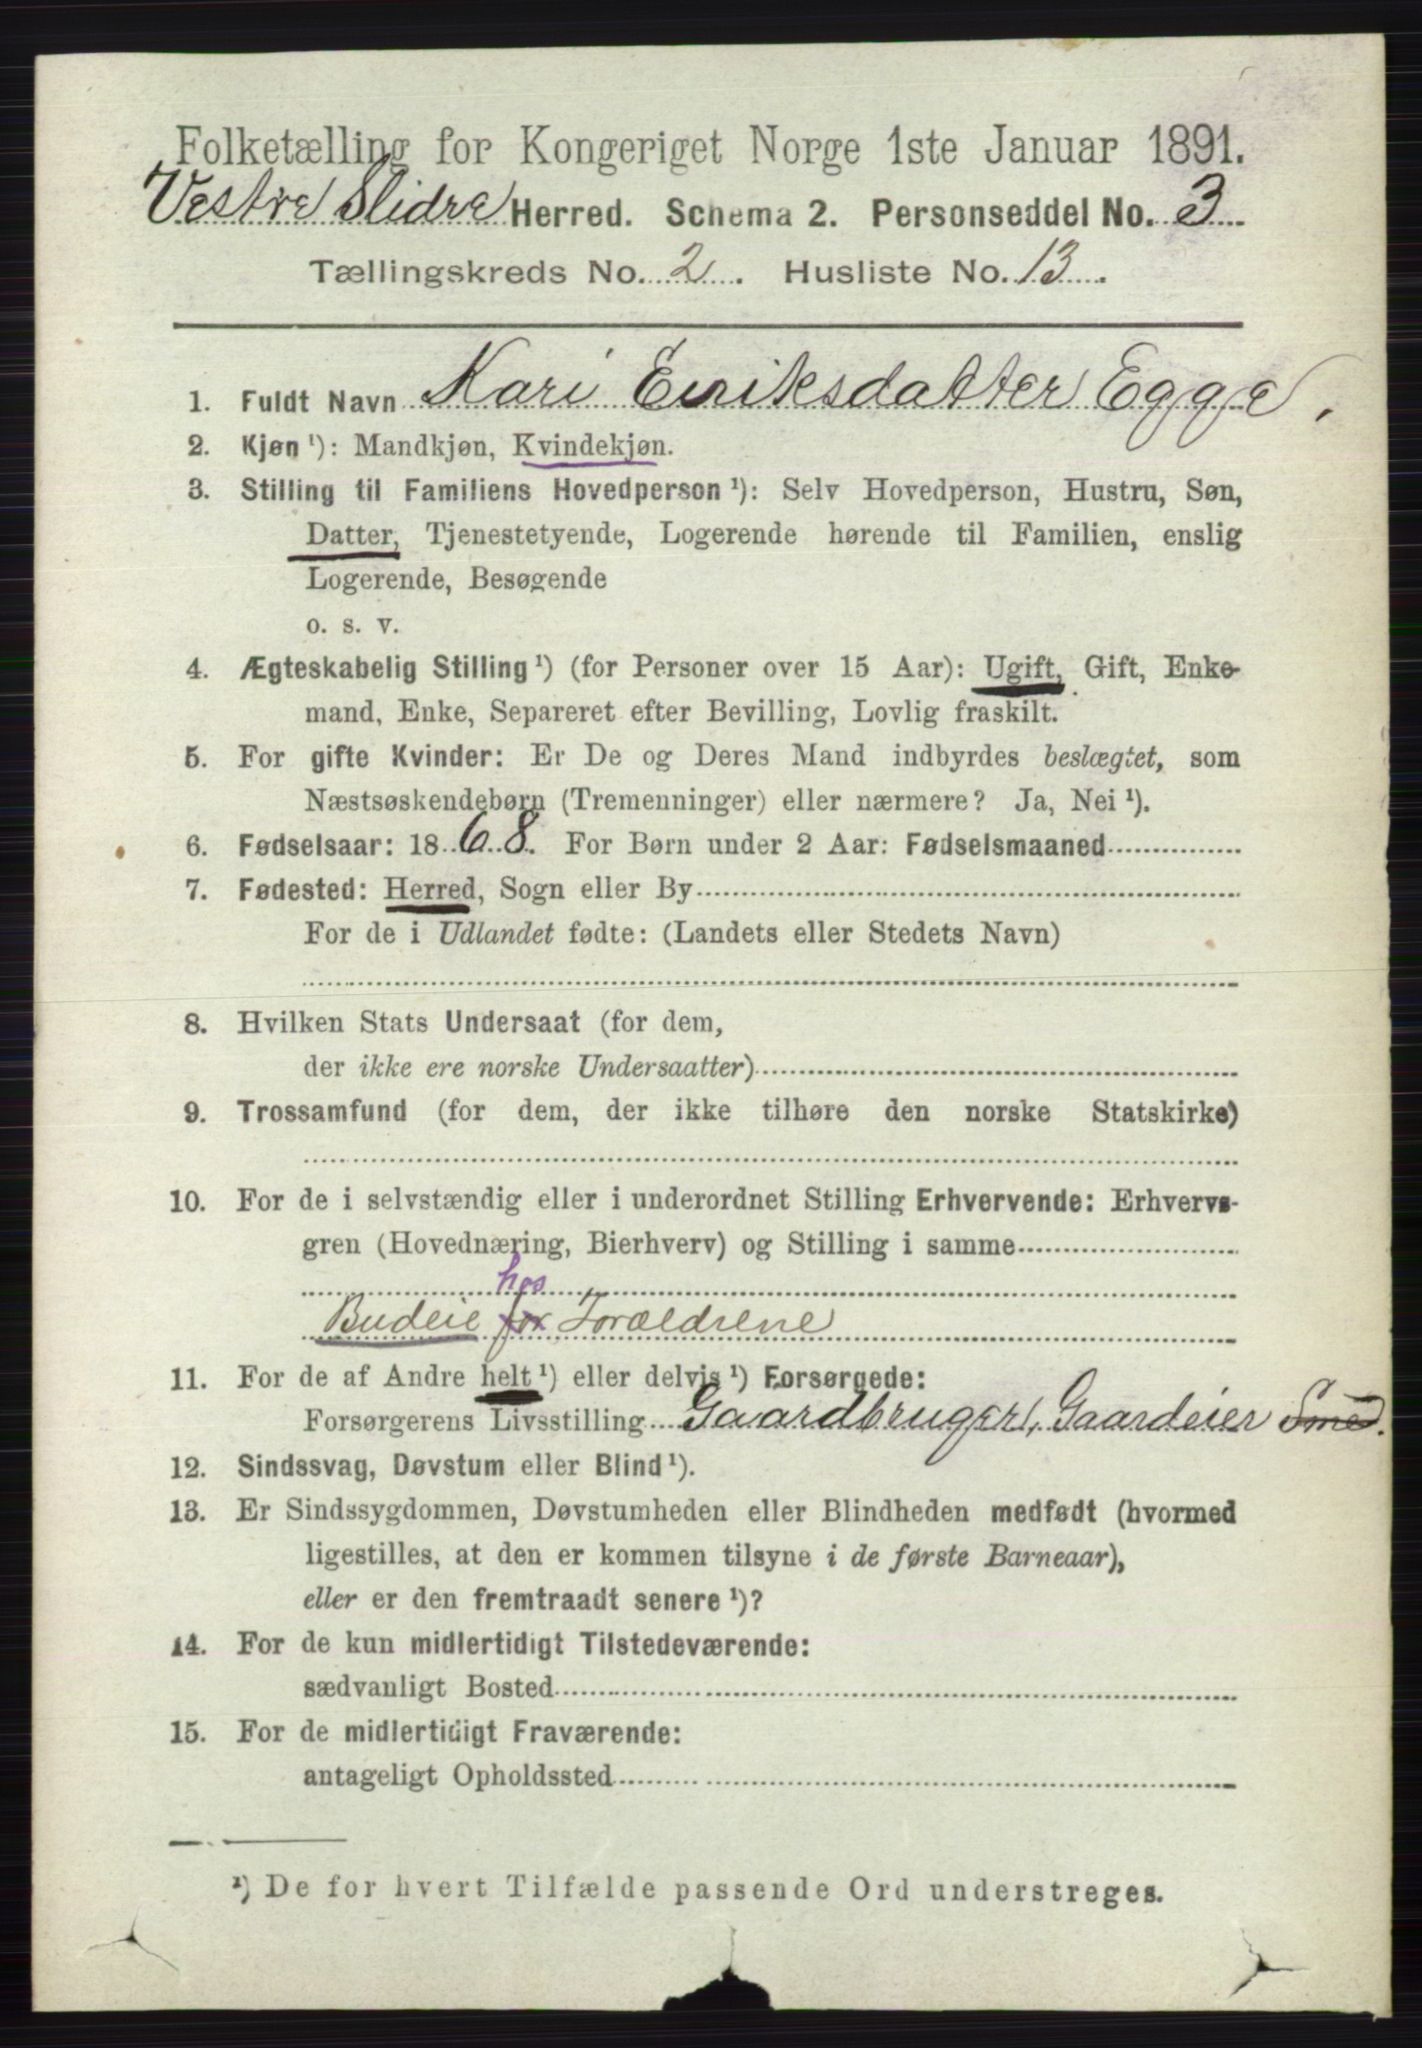 Folketælling for Kongeriget Norge 1ste Januar 1891.
Vestre Slidre Herred. Schema 2. Personseddel No. 3
Tællingskreds No. 2. Husliste No. 13.
1. Fuldt Navn Kari Eiriksdatter Egge.
2. Kjøn ¹): Mandkjøn, Kvindekjøn.
3. Stilling til Familiens Hovedperson ¹): Selv Hovedperson, Hustru, Søn,
Datter, Tjenestetyende, Logerende hørende til Familien, enslig
Logerende, Besøgende
o. s. v.
4. Ægteskabelig Stilling ¹) (for Personer over 15 Aar): Ugift, Gift, Enke-
mand, Enke, Separeret efter Bevilling, Lovlig fraskilt.
5. For gifte Kvinder: Er De og Deres Mand indbyrdes beslægtet, som
Næstsøskendebørn (Tremenninger) eller nærmere? Ja, Nei ¹).
6. Fødselsaar: 1868. For Børn under 2 Aar: Fødselsmaaned
7. Fødested: Herred, Sogn eller By
For de i Udlandet fødte: (Landets eller Stedets Navn)
8. Hvilken Stats Undersaat (for dem,
der ikke ere norske Undersaatter)
9. Trossamfund (for dem, der ikke tilhøre den norske Statskirke)
10. For de i selvstændig eller i underordnet Stilling Erhvervende: Erhvervs-
gren (Hovednæring, Bierhverv) og Stilling i samme
hos
Budeie for Forældrene
11. For de af Andre helt ¹) eller delvis ¹) Forsørgede:
Forsørgerens Livsstilling Gaardbruger, Gaardeier Smed.
12. Sindssvag, Døvstum eller Blind ¹).
13. Er Sindssygdommen, Døvstumheden eller Blindheden medfødt (hvormed
ligestilles, at den er kommen tilsyne i de første Barneaar),
eller er den fremtraadt senere ¹)?
14. For de kun midlertidigt Tilstedeværende:
sædvanligt Bosted
15. For de midlertidigt Fraværende:
antageligt Opholdssted
¹) De for hvert Tilfælde passende Ord understreges.